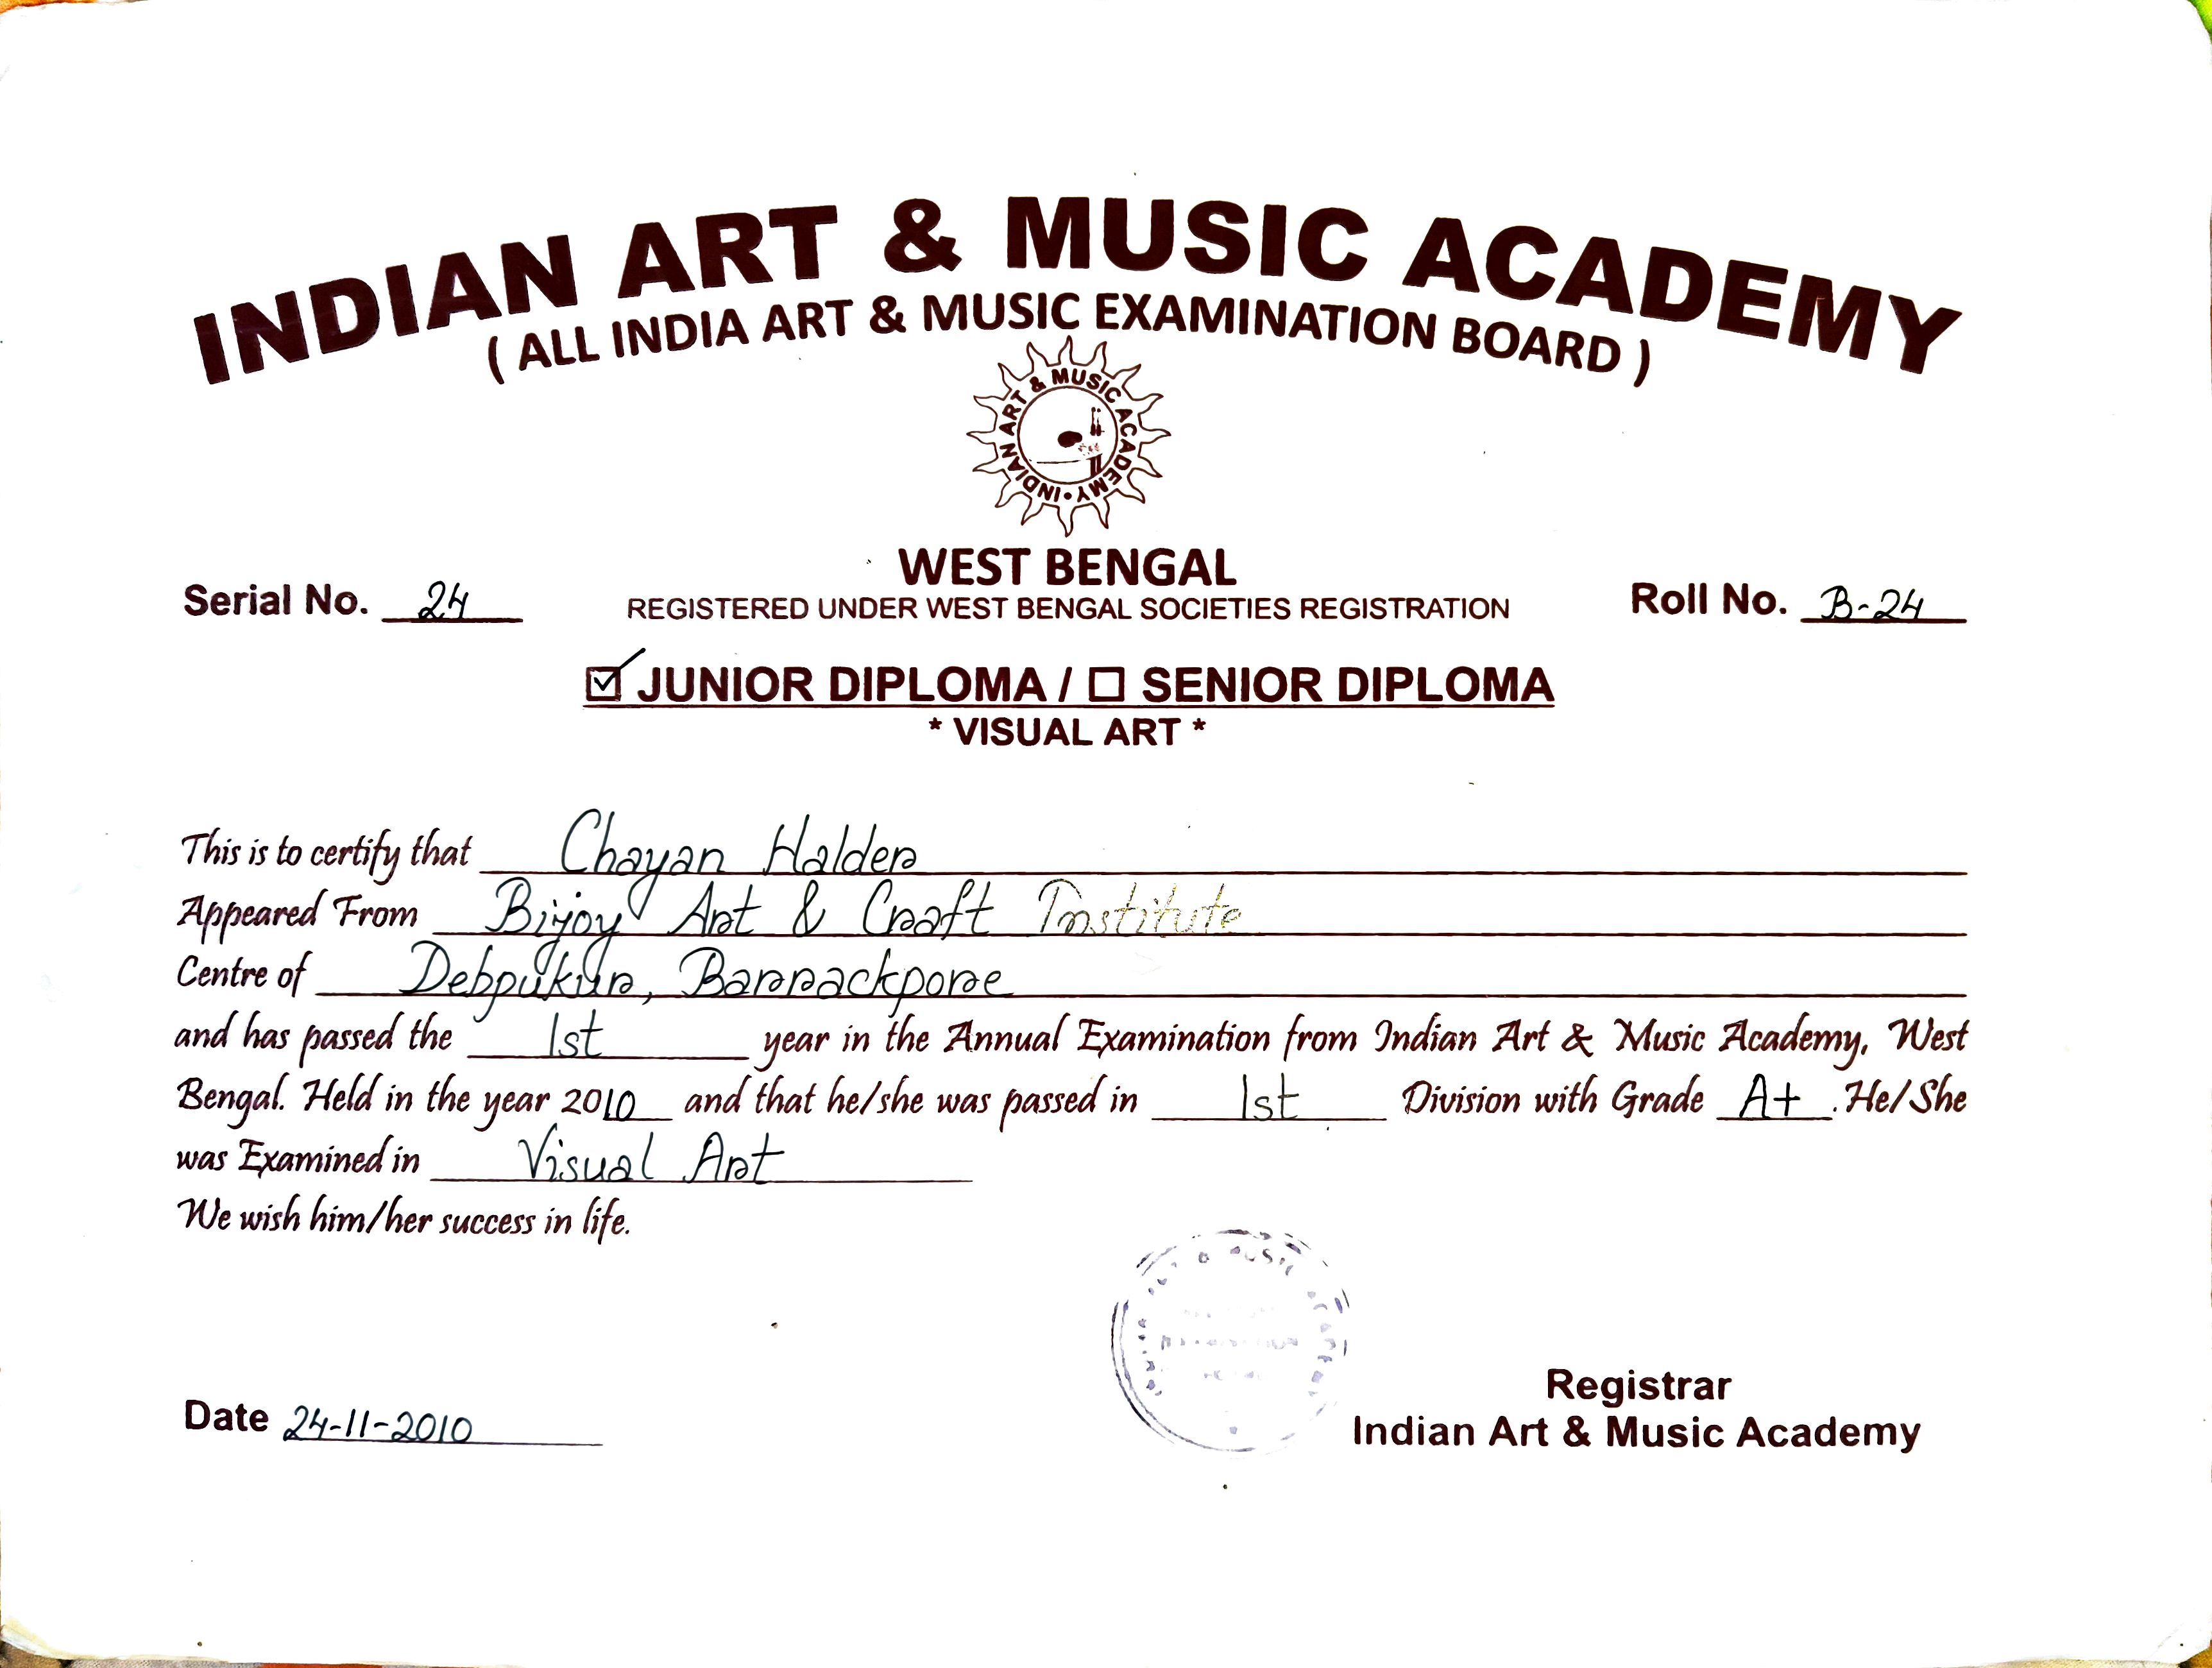 INDIAN ART & MUSIC ACADEMY
( ALL INDIA ART & MUSIC EXAMINATION BOARD )
INDIAN ART & MUSIC ACADEMY •
WEST BENGAL
Serial No. 24
REGISTERED UNDER WEST BENGAL SOCIETIES REGISTRATION
Roll No. B-24
☑ JUNIOR DIPLOMA / ☐ SENIOR DIPLOMA
* VISUAL ART *
This is to certify that Chayan Halder
Appeared From Bijoy Art & Craft Institute
Centre of Debpukur, Barrackpore
and has passed the 1st year in the Annual Examination from Indian Art & Music Academy, West
Bengal. Held in the year 2010 and that he/she was passed in 1st Division with Grade A+. He/She
was Examined in Visual Art
We wish him/her success in life.
Date 24-11-2010
Registrar
Indian Art & Music Academy